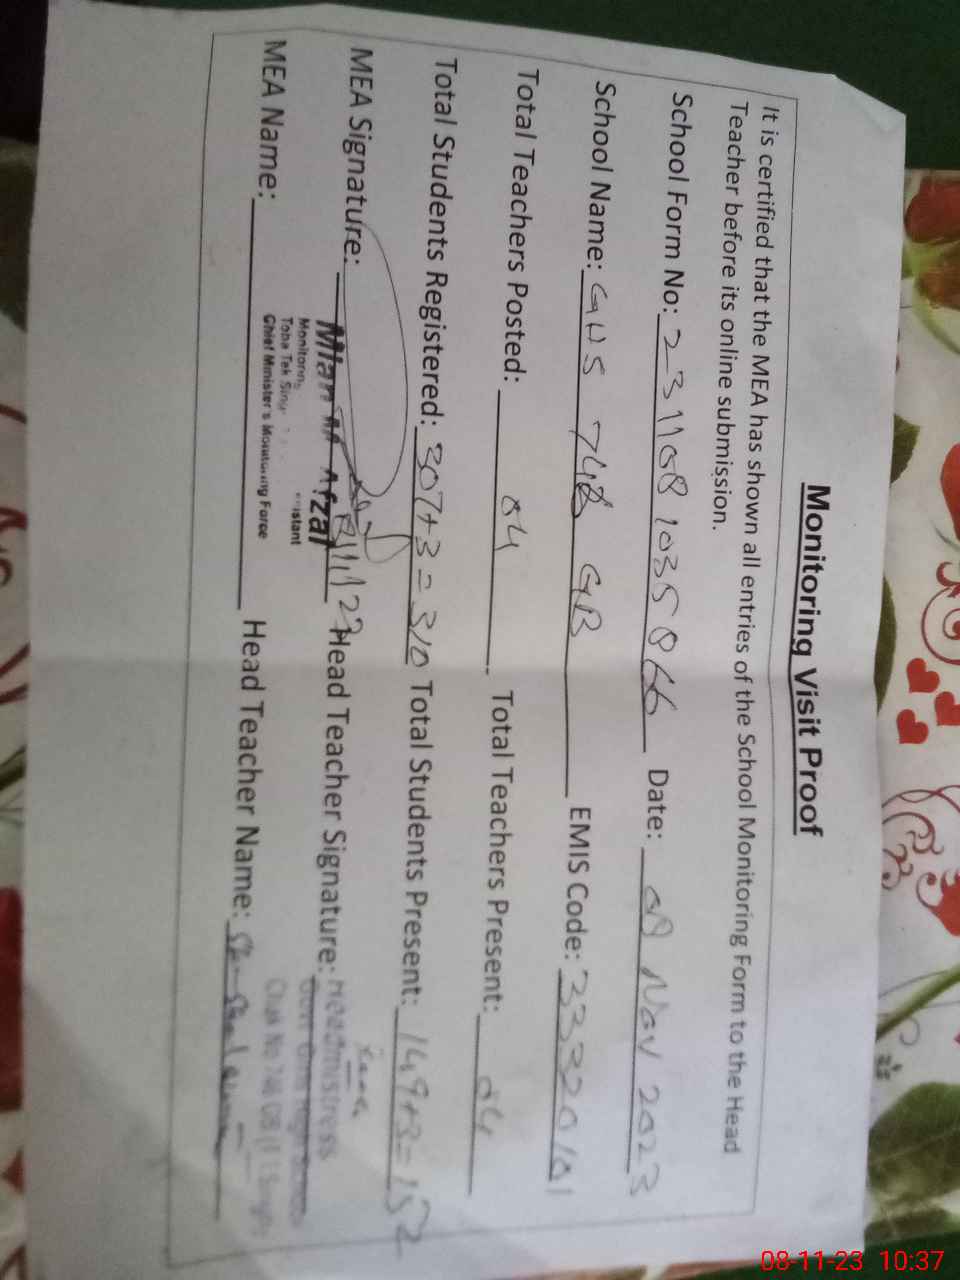 Monitoring Visit Proof
It is certified that the MEA has shown all entries of the School Monitoring Form to the Head
Teacher before its online submission.
School Form No: 2311081035866 Date: 08 Nov 2023
School Name: GHS 748 GB EMIS Code: 33320101
Total Teachers Posted: 04 Total Teachers Present: 04
Total Students Registered: 307+3=310 Total Students Present: 149+3=152
MEA Signature: 8/11/23 Head Teacher Signature: Headmistress
Mian Afzal
Monitoring
Toba Tek Singh
Chief Minister's Monitoring Force
MEA Name: Head Teacher Name:
Govt Girls High School
Chak No 748 GB (T T Singh)
08-11-23 10:37